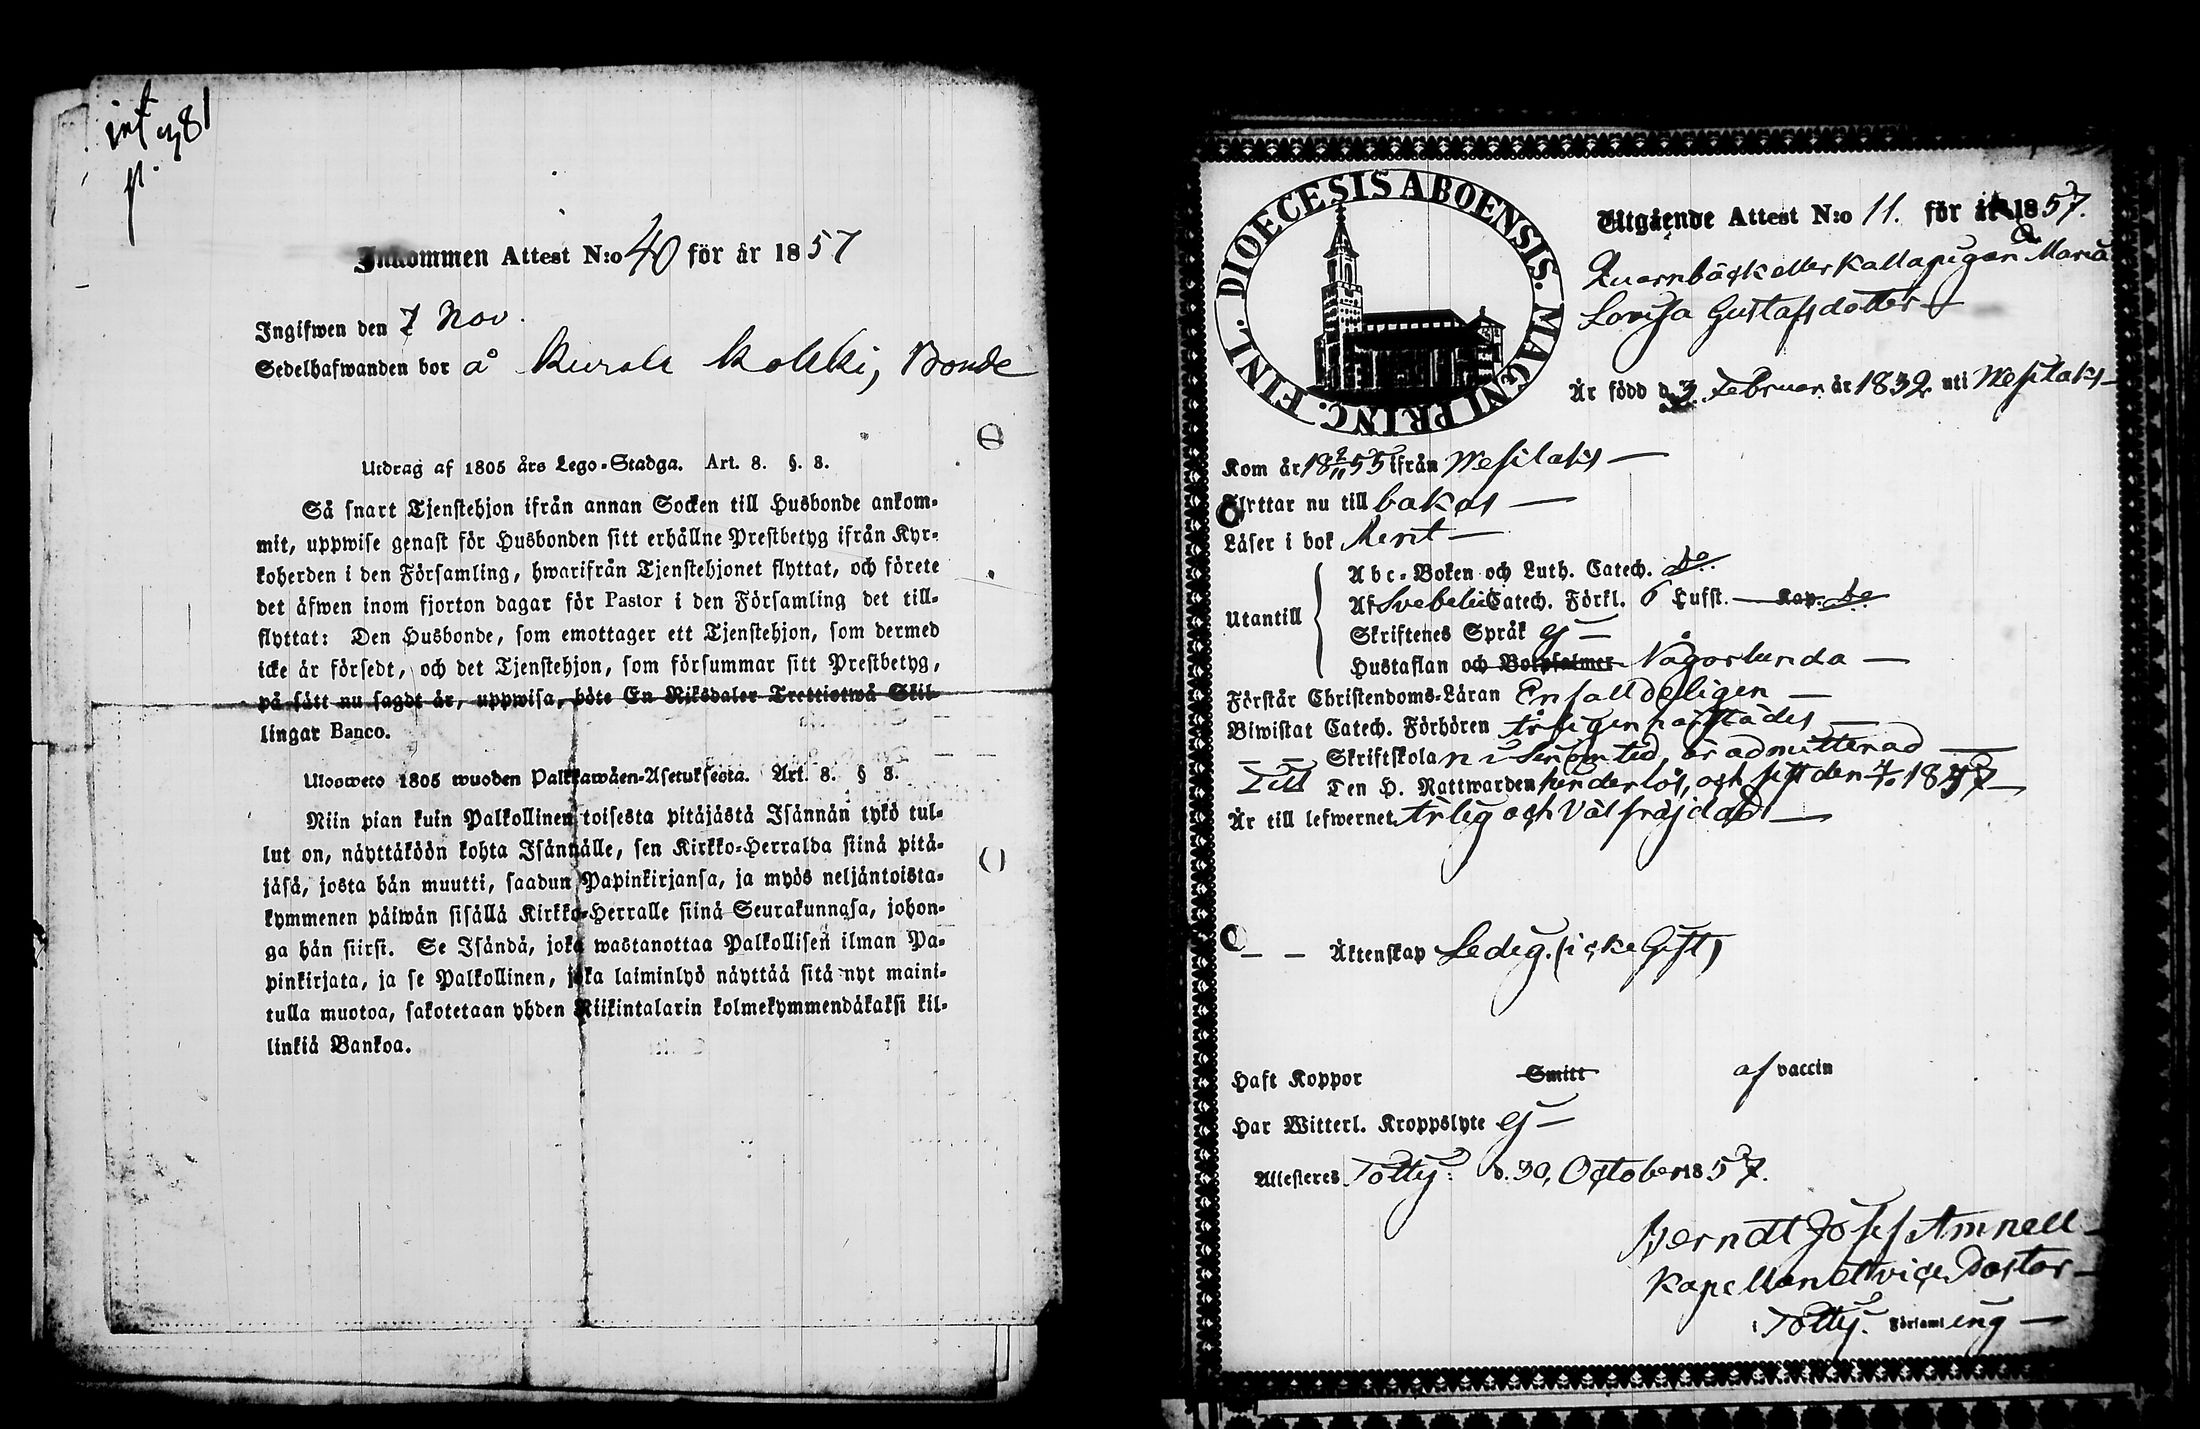 int. 381
p.
Inkommen Attest N:o 40 för år 1857
Ingifwen den 7 Nov.
Sedelhafwanden bor å Kurala Kolkki, Bonde
Utdrag af 1805 års Lego-Stadga. Art. 8. §. 8.
Så snart Tjenstehjon ifrån annan Socken till Husbonde ankom-
mit, uppwise genast för Husbonden sitt erhållne Prestbetyg ifrån Kyr-
koherden i den Församling, hwarifrån Tjenstehjonet flyttat, och förete
det äfwen inom fjorton dagar för Pastor i den Församling det till-
flyttat: Den Husbonde, som emottager ett Tjenstehjon, som dermed
icke är försedt, och det Tjenstehjon, som försummar sitt Prestbetyg,
på sätt nu sagdt är, uppwisa, böte En Riksdaler Trettiotwå Skil-
lingar Banco.
Ulosweto 1805 wuoden Palkkawäen-Asetuksesta. Art. 8. § 8.
Niin pian kuin Palkollinen toisesta pitäjästä Isännän tykö tul-
lut on, näyttäköön kohta Isännälle, sen Kirkko-Herralda siinä pitä-
jäsä, josta hän muutti, saadun Papinkirjansa, ja myös neljäntoista-
kymmenen päiwän sisällä Kirkko-Herralle siinä Seurakunnasa, johon-
ga hän siirsi. Se Isändä, joka wastanottaa Palkollisen ilman Pa-
pinkirjata, ja se Palkollinen, joka laiminlyö näyttää sitä nyt maini-
tulla muotoa, sakotetaan yhden Riikintalarin kolmekymmendäkaksi kil-
linkiä Bankoa.
DIOECESIS ABOENSIS. MAGNI PRINC. FINL.
Utgående Attest N:o 11. för år 1857.
Quarnbäck eller Kallapigan Maria
Lovisa Gustafsdotter
Är född d. 3 Februar. år 1832 uti Wesilaks
Kom år 18 2/11 55 ifrån Wesilaks
Flyttar nu till bakas
Läser i bok Rent
Utantill
Abc-Boken och Luth. Catech. do.
Af Svebelii Catech. Förkl. 6 Hufst. Kap. do
Skriftenes Språk ej
Hustaflan och Botpsalmer Någorlunda
Förstår Christendoms-Läran Enfalldeligen
Biwistat Catech. Förhören Årligen härstädes
Skriftskolan i sin tid, är admitterad
Till Den H. Nattwarden hinderlös, och sist den 4/10 1857
Är till lefwernet Ärlig och Väl fräjdad
Äktenskap Ledig. (icke Gift)
Haft Koppor Smitt af vaccin
Har Witterl. Kroppslyte ej
Attesteres Töttij. d. 30, October 1857.
Berndt Josef Amnell
Kapellan et vice Pastor
i Töttij. Församl.ing